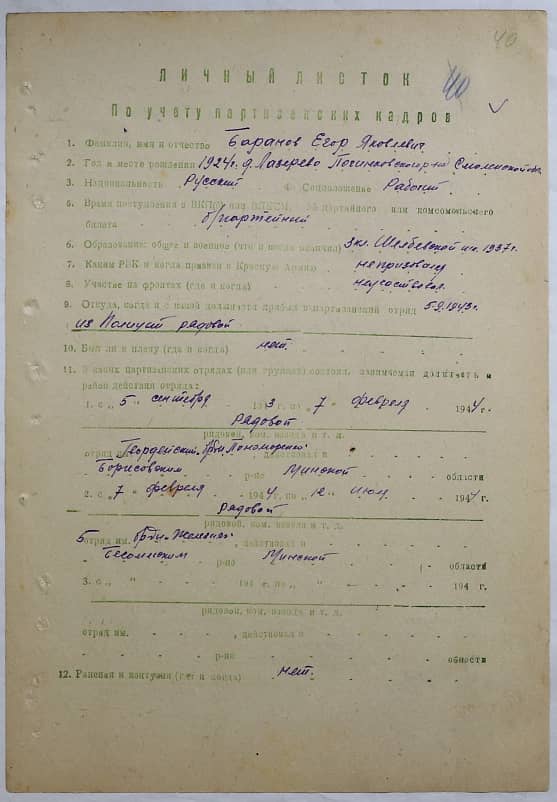 40
ЛИЧНЫЙ ЛИСТОК
40
По учету партизанских кадров
1. Фамилия, имя и отчество Баранов Егор Яковлевич
2. Год и место рождения 1924 г. д. Лазарево Починковского р-на Смоленской обл.
3. Национальность Русский 4. Соцположение Рабочий
5. Время поступления в ВКП(б) или ВЛКСМ, № партийного или комсомольского
билета б/партейный
6. Образование: общее и военное (что и когда окончил) 3 кл. 1937 г.
7. Каким РВК и когда призван в Красную Армию не призывал
8. Участие на фронтах (где и когда) не участвовал
9. Откуда, когда и с какой должности прибыл в партизанский отряд 5.9.1943 г.
из Полиции рядовой
10. Был ли в плену (где и когда) нет.
11. В каких партизанских отрядах (или группах) состоял, занимаемая должность и
район действия отряда:
1. с „5“ сентября 1943 г. по „7“ февраля 1944 г.
Рядовой
рядовой, ком. взвода и т. д.
отряд им. Гвардейский бр-ды Пономарева, действовал в
Борисовском р-не Минской области
2. с „7“ февраля 1944 г. по „12“ июля 1944 г.
Рядовой
рядовой, ком. взвода и т. д.
5 отряд им. бр-ды „Железняк“, действовал в
Бегомльском р-не Минской области
3. с „ “ 194 г. по „ “ 194 г.
рядовой, ком. взвода и т. д.
отряд им. , действовал в
р-не области
12. Ранения и контузии (где и когда) нет.